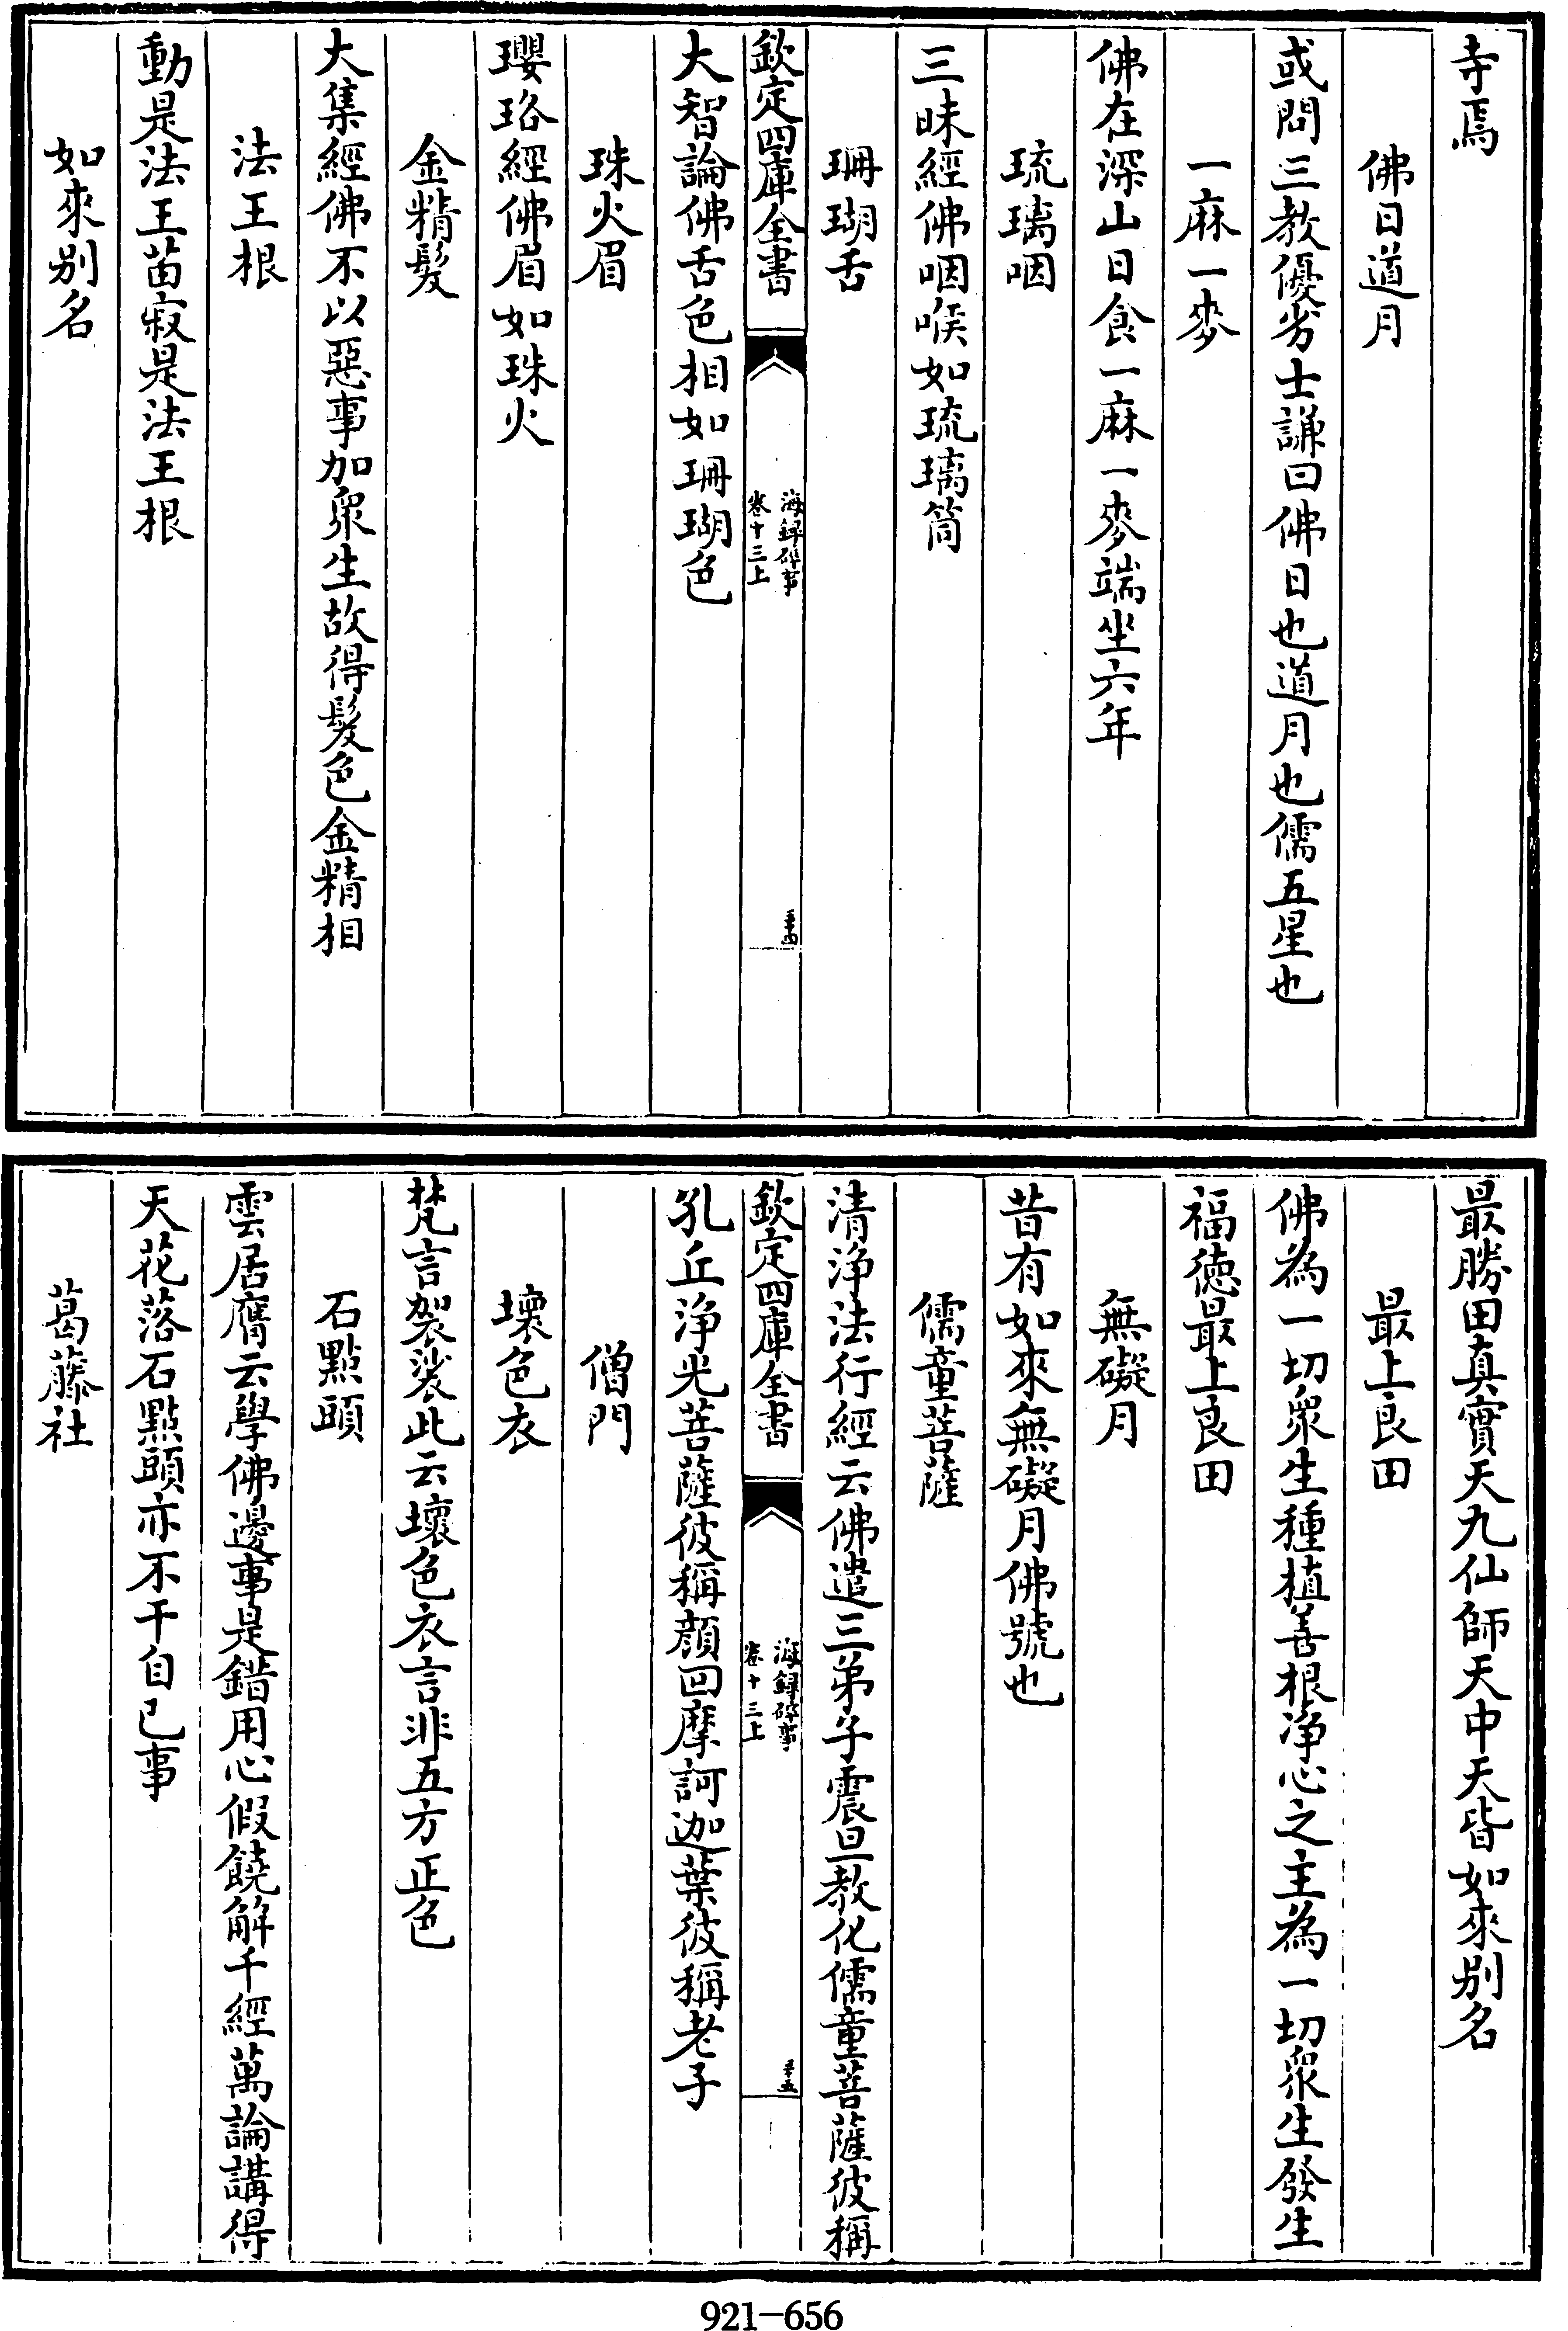 寺焉
佛日道月
或問三教優劣士謙曰佛日也道月也儒五星也
一麻一麥
佛在深山日食一麻一麥端坐六年
琉璃咽
三昧經佛咽喉如琉璃筒
珊瑚舌
欽定四庫全書
海録碎事
卷十三上
三十四
大智論佛舌色相如珊瑚色
珠火眉
瓔珞經佛眉如珠火
金精髮
大集經佛不以惡事加衆生故得髮色金精相
法王根
動是法王苗寂是法王根
如來别名
最勝田真實天九仙師天中天皆如來别名
最上良田
佛為一切衆生種植善根净心之主為一切衆生發生
福徳最上良田
無礙月
昔有如來無礙月佛號也
儒童菩薩
清浄法行經云佛遣三弟子震旦教化儒童菩薩彼稱
欽定四庫全書
海録碎事
卷十三上
三十五
孔丘浄光菩薩彼稱顔回摩訶迦葉彼稱老子
僧門
壞色衣
梵言袈裟此云壞色衣言非五方正色
石點頭
雲居膺云學佛邊事是錯用心假饒解千經萬論講得
天花落石點頭亦不干自己事
葛藤社
921-656